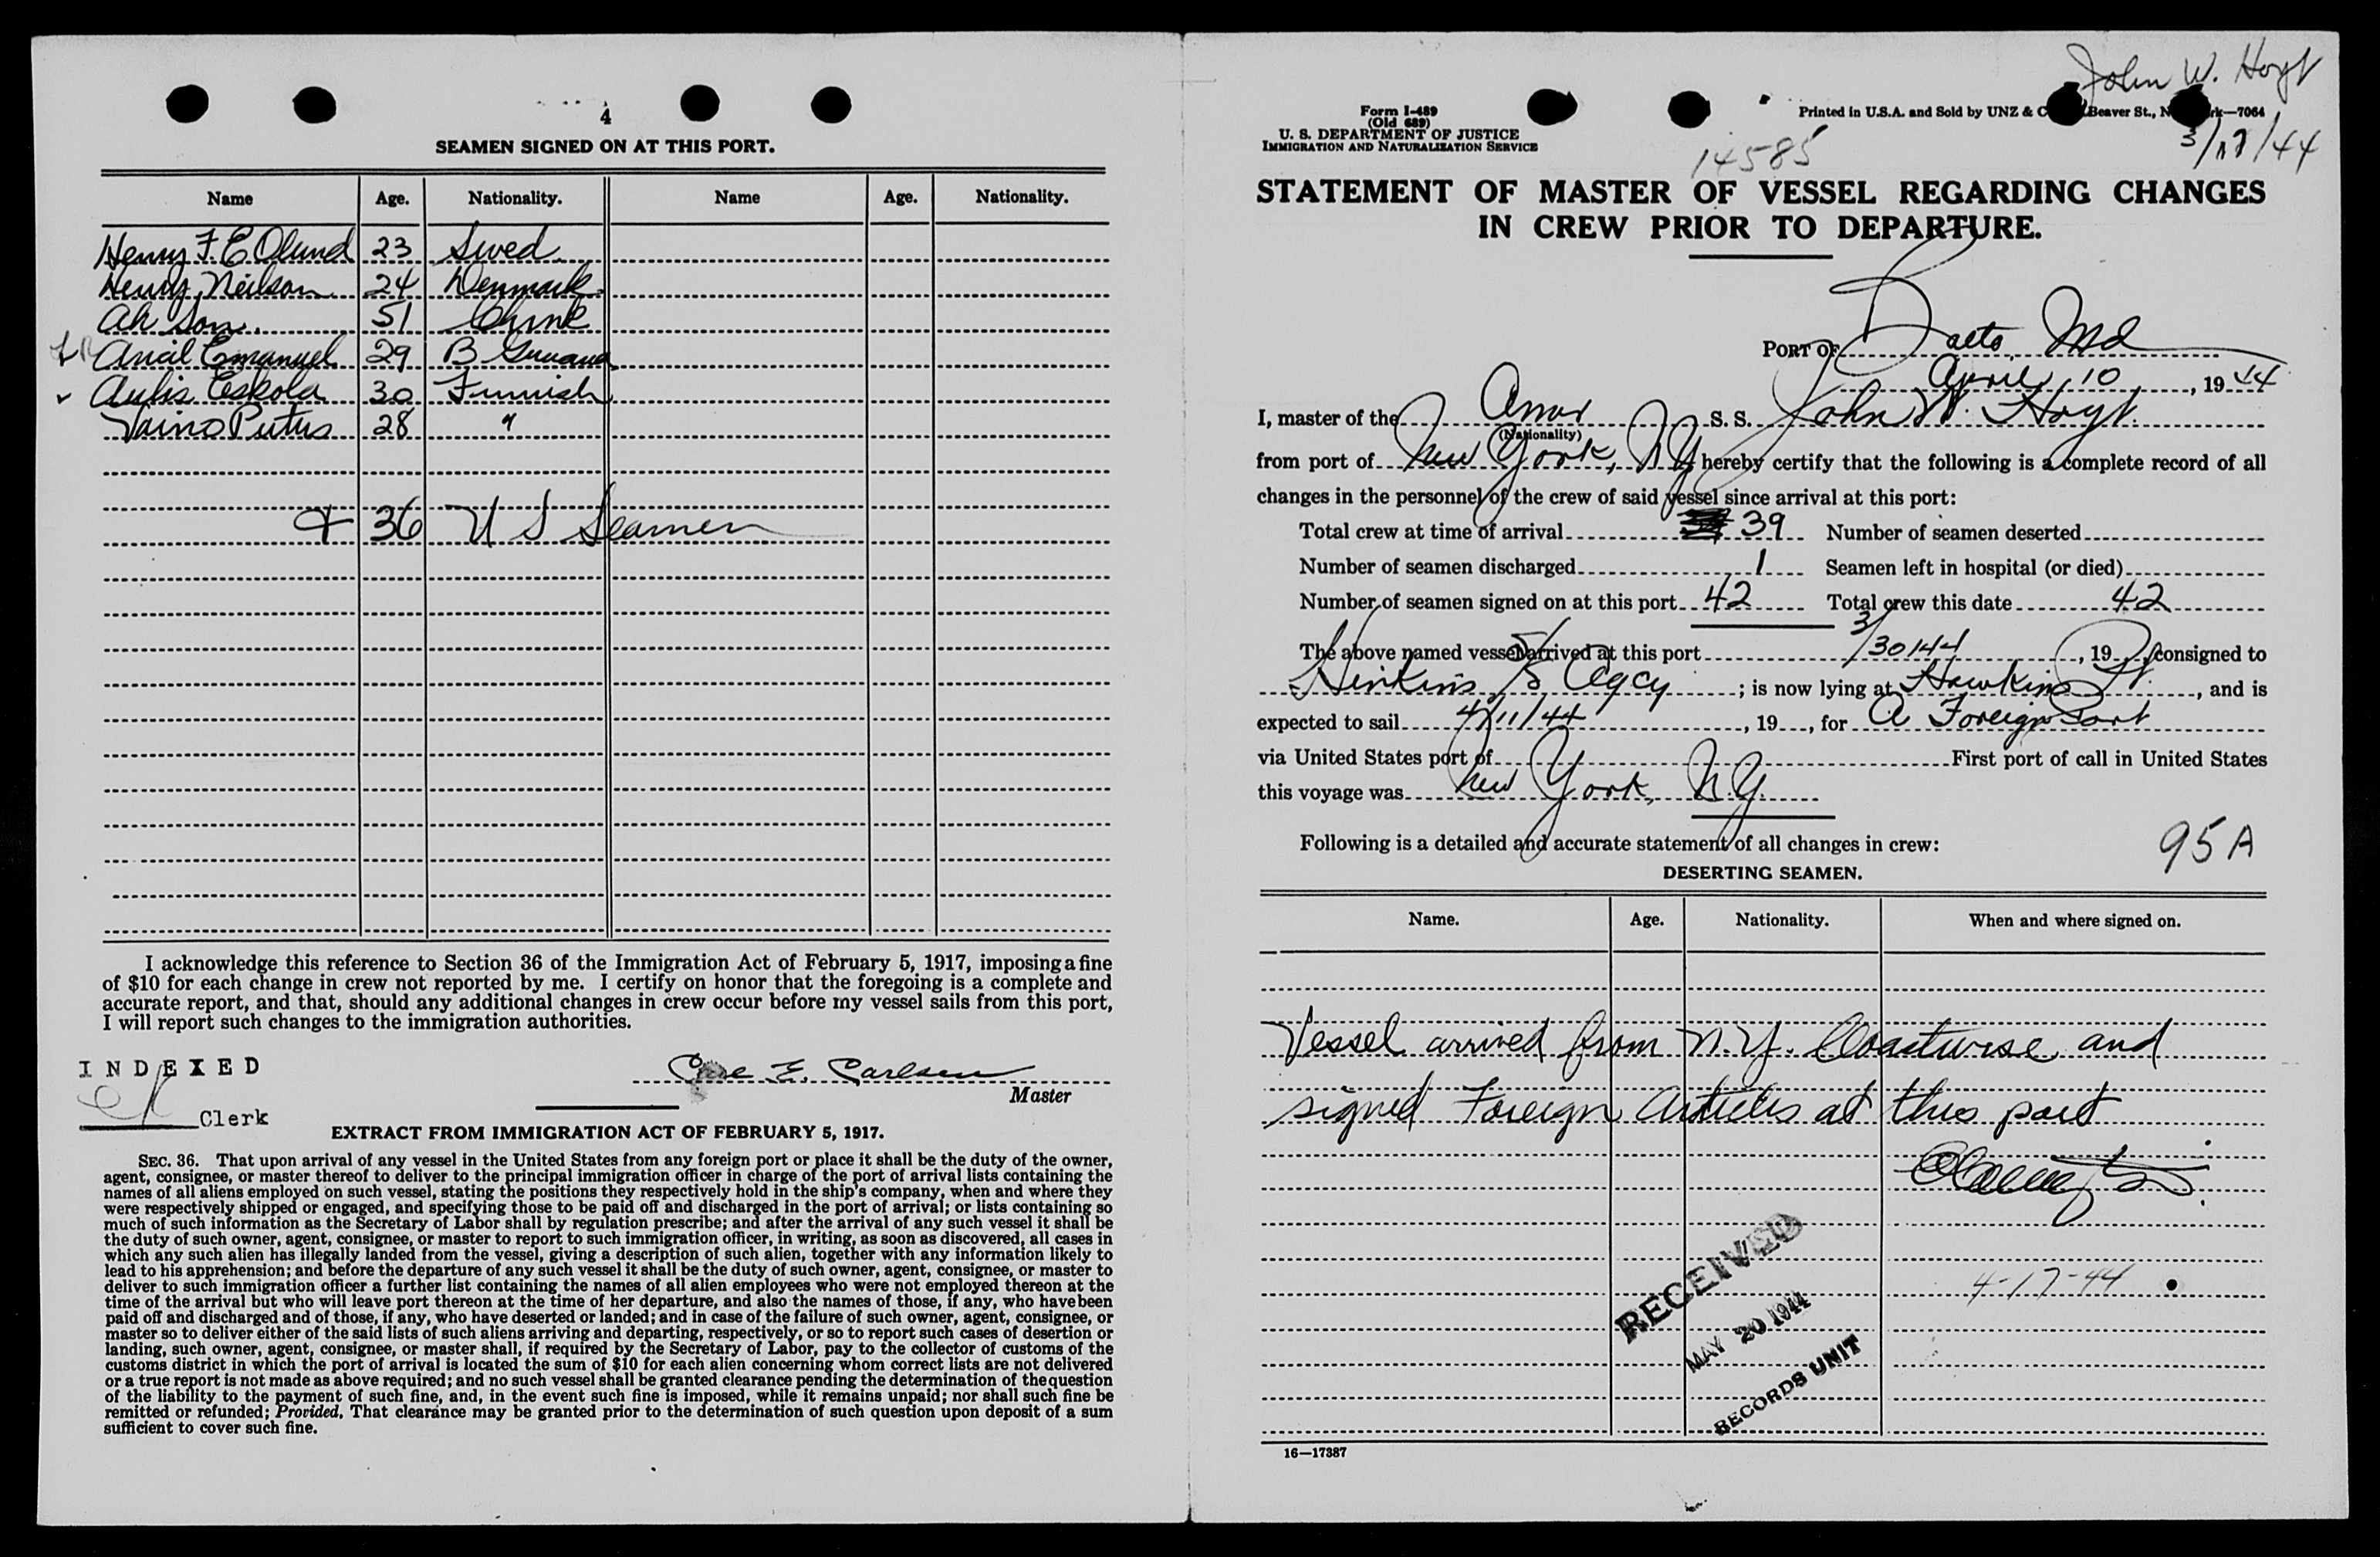 4
SEAMEN SIGNED ON AT THIS PORT.
Name Age. Nationality. Name Age. Nationality.
Henry F. E Olund 23 Swed
Henry Neilson 24 Denmark
Ah Son 51 Chine
Anail Emanuel 29 B Guuana
Aulis Eskola 30 Finnish
Vaino Putus 28 "
+ 36 U S Seamen
I acknowledge this reference to Section 36 of the Immigration Act of February 5, 1917, imposing a fine
of $10 for each change in crew not reported by me. I certify on honor that the foregoing is a complete and
accurate report, and that, should any additional changes in crew occur before my vessel sails from this port,
I will report such changes to the immigration authorities.
INDEXED
Clerk
E. Carlsen
Master
EXTRACT FROM IMMIGRATION ACT OF FEBRUARY 5, 1917.
SEC. 36. That upon arrival of any vessel in the United States from any foreign port or place it shall be the duty of the owner,
agent, consignee, or master thereof to deliver to the principal immigration officer in charge of the port of arrival lists containing the
names of all aliens employed on such vessel, stating the positions they respectively hold in the ship's company, when and where they
were respectively shipped or engaged, and specifying those to be paid off and discharged in the port of arrival; or lists containing so
much of such information as the Secretary of Labor shall by regulation prescribe; and after the arrival of any such vessel it shall be
the duty of such owner, agent, consignee, or master to report to such immigration officer, in writing, as soon as discovered, all cases in
which any such alien has illegally landed from the vessel, giving a description of such alien, together with any information likely to
lead to his apprehension; and before the departure of any such vessel it shall be the duty of such owner, agent, consignee, or master to
deliver to such immigration officer a further list containing the names of all alien employees who were not employed thereon at the
time of the arrival but who will leave port thereon at the time of her departure, and also the names of those, if any, who have been
paid off and discharged and of those, if any, who have deserted or landed; and in case of the failure of such owner, agent, consignee, or
master so to deliver either of the said lists of such aliens arriving and departing, respectively, or so to report such cases of desertion or
landing, such owner, agent, consignee, or master shall, if required by the Secretary of Labor, pay to the collector of customs of the
customs district in which the port of arrival is located the sum of $10 for each alien concerning whom correct lists are not delivered
or a true report is not made as above required; and no such vessel shall be granted clearance pending the determination of the question
of the liability to the payment of such fine, and, in the event such fine is imposed, while it remains unpaid; nor shall such fine be
remitted or refunded; Provided, That clearance may be granted prior to the determination of such question upon deposit of a sum
sufficient to cover such fine.
John W. Hoyt
Form I-489
(Old 689)
U. S. DEPARTMENT OF JUSTICE
IMMIGRATION AND NATURALIZATION SERVICE
Printed in U.S.A. and Sold by UNZ & C Beaver St., N rk—7064
14585
3/17/44
STATEMENT OF MASTER OF VESSEL REGARDING CHANGES
IN CREW PRIOR TO DEPARTURE.
PORT OF Balto, Md
April, 10, 1944
I, master of the Amer S. S. John W. Hoyt
(Nationality)
from port of New York, N Y hereby certify that the following is a complete record of all
changes in the personnel of the crew of said vessel since arrival at this port:
Total crew at time of arrival 39 Number of seamen deserted
Number of seamen discharged 1 Seamen left in hospital (or died)
Number of seamen signed on at this port 42 Total crew this date 42
The above named vessel arrived at this port 3/30/44, 19 , consigned to
Hinkins S/S Agcy ; is now lying at Hawkins Pt., and is
expected to sail 4/11/44, 19 , for A Foreign Port
via United States port of First port of call in United States
this voyage was New York, N.Y.
Following is a detailed and accurate statement of all changes in crew:
95A
DESERTING SEAMEN.
Name. Age. Nationality. When and where signed on.
Vessel arrived from N.Y. Coastwise and
signed Foreign Articles at this port
RECEIVED
MAY 20 1944
RECORDS UNIT
4-17-44
16—17387